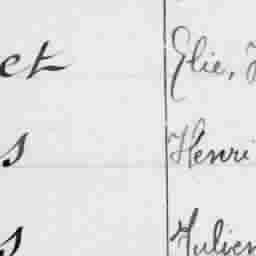 et Elie,
s Henri
s Julien